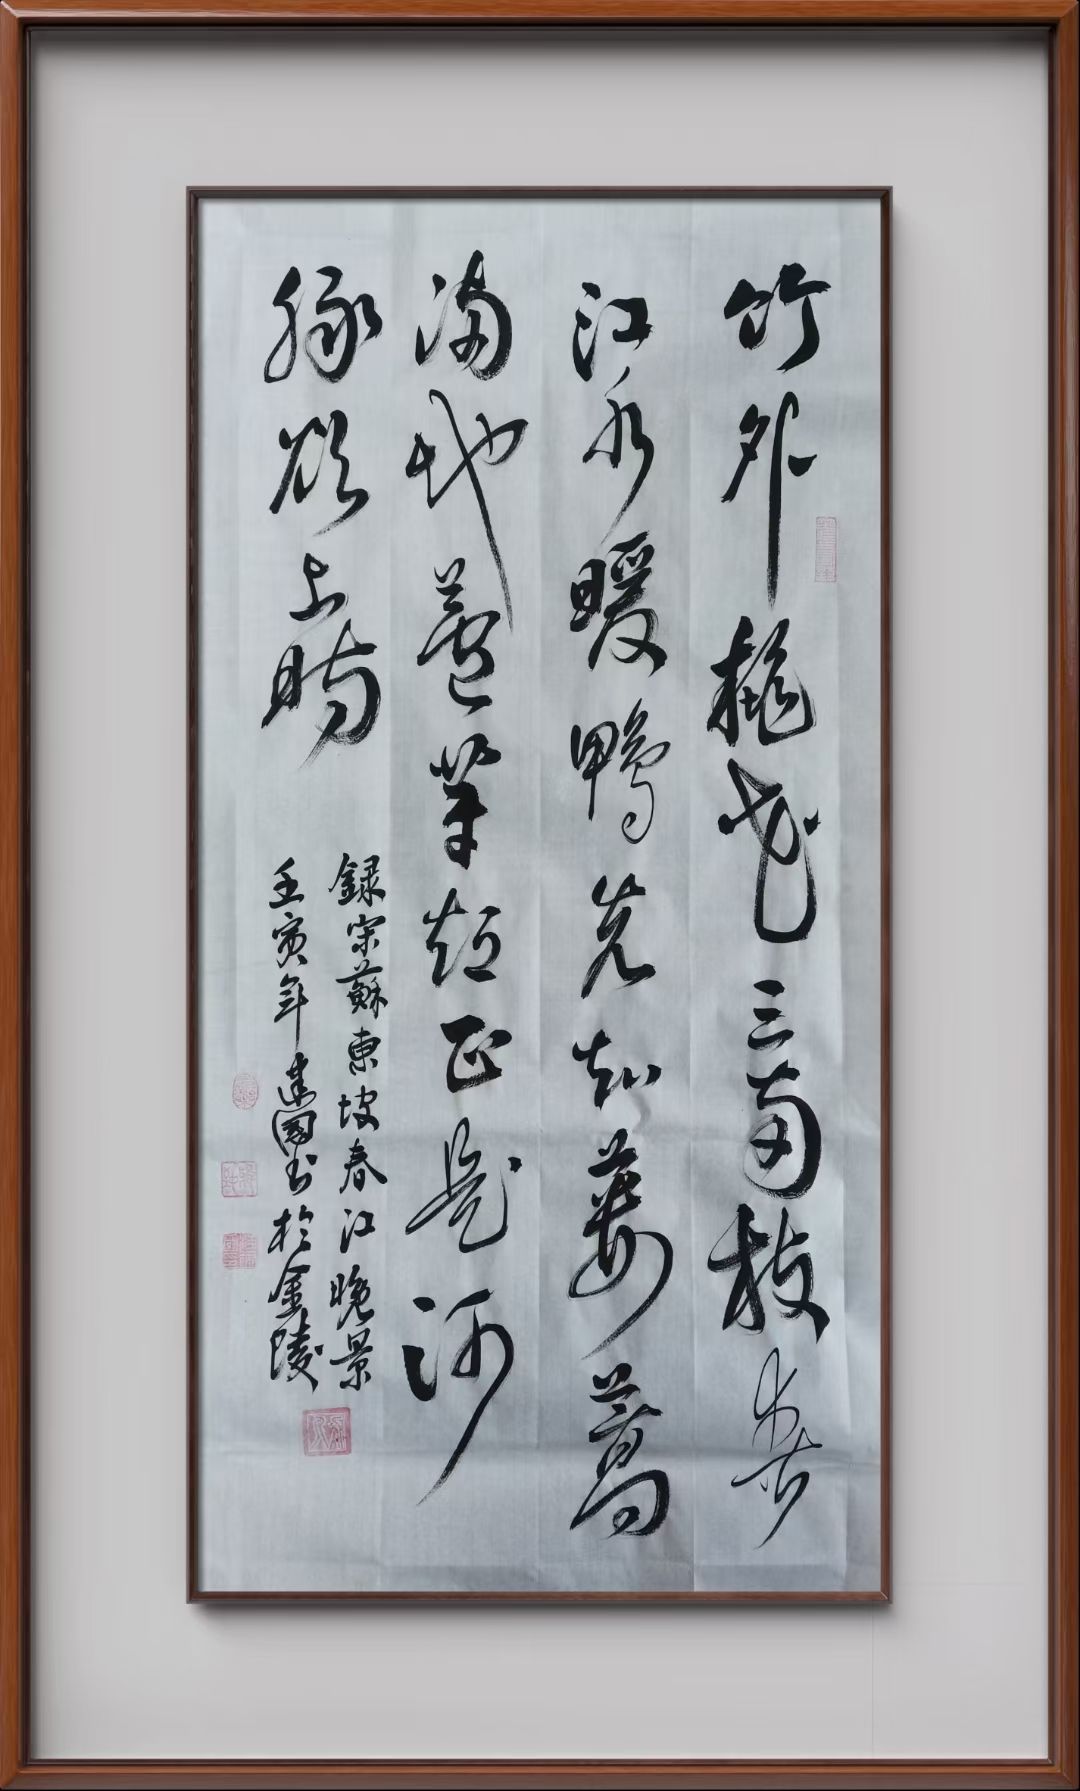 竹外桃花三兩枝春
江水暖鴨先知蔞蒿
滿地蘆芽短正是河
豚欲上時
録宋蘇東坡春江晚景
壬寅年建國书於金陵